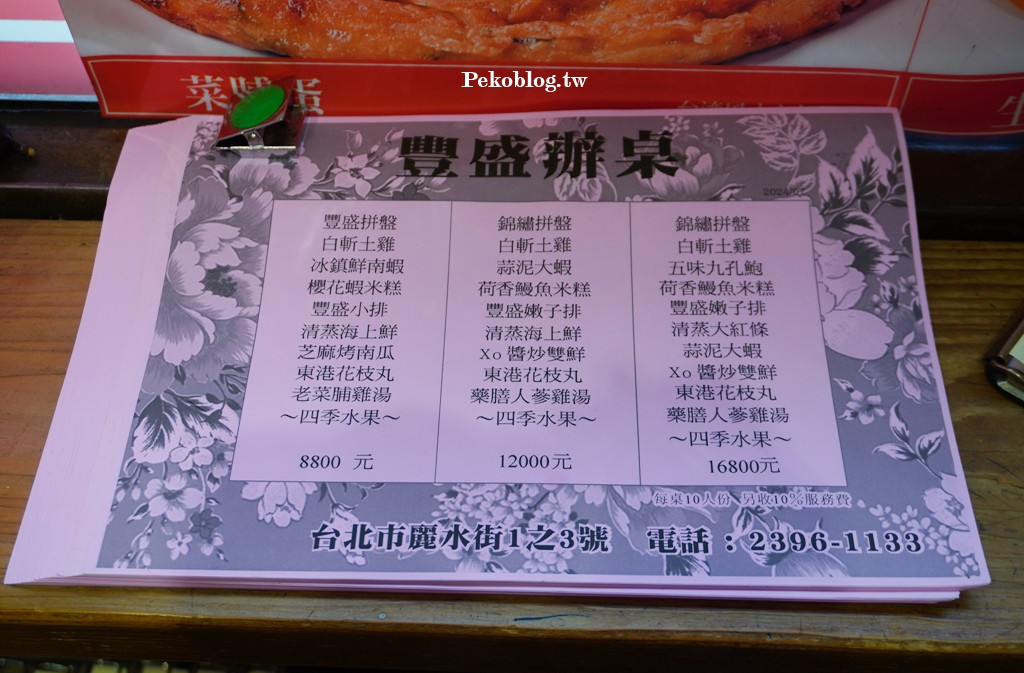 Pekoblog.tw
菜脯蛋
豐盛辦桌
豐盛拼盤
白斬土雞
冰鎮鮮南蝦
櫻花蝦米糕
豐盛小排
清蒸海上鮮
芝麻烤南瓜
東港花枝丸
老菜脯雞湯
～四季水果～
8800 元
錦繡拼盤
白斬土雞
蒜泥大蝦
荷香鰻魚米糕
豐盛嫩子排
清蒸海上鮮
Xo 醬炒雙鮮
東港花枝丸
藥膳人蔘雞湯
～四季水果～
12000元
錦繡拼盤
白斬土雞
五味九孔鮑
荷香鰻魚米糕
豐盛嫩子排
清蒸大紅條
蒜泥大蝦
Xo 醬炒雙鮮
東港花枝丸
藥膳人蔘雞湯
～四季水果～
16800元
每桌10人份 另收10%服務費
台北市麗水街1之3號 電話：2396-1133